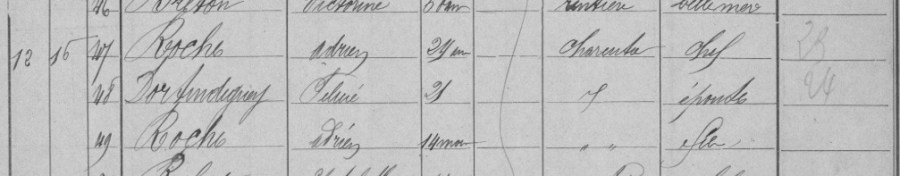 46 Breton Victorine rentière belle mère
12 15 47 Roche Adrien 29 an Charente chef 29
48 Félicie 21 épouse 24
49 Roche Adrien 14 mois " " fils